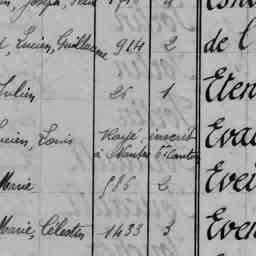 , Lucien, Guillaume 914 2 de l
Julien 26 1 Eten
Lucien, Louis Rayé, inscrit Eva
à Nantes 5e Canton
Marie 586 2 Evei
Marie, Célestin 1433 3 Even